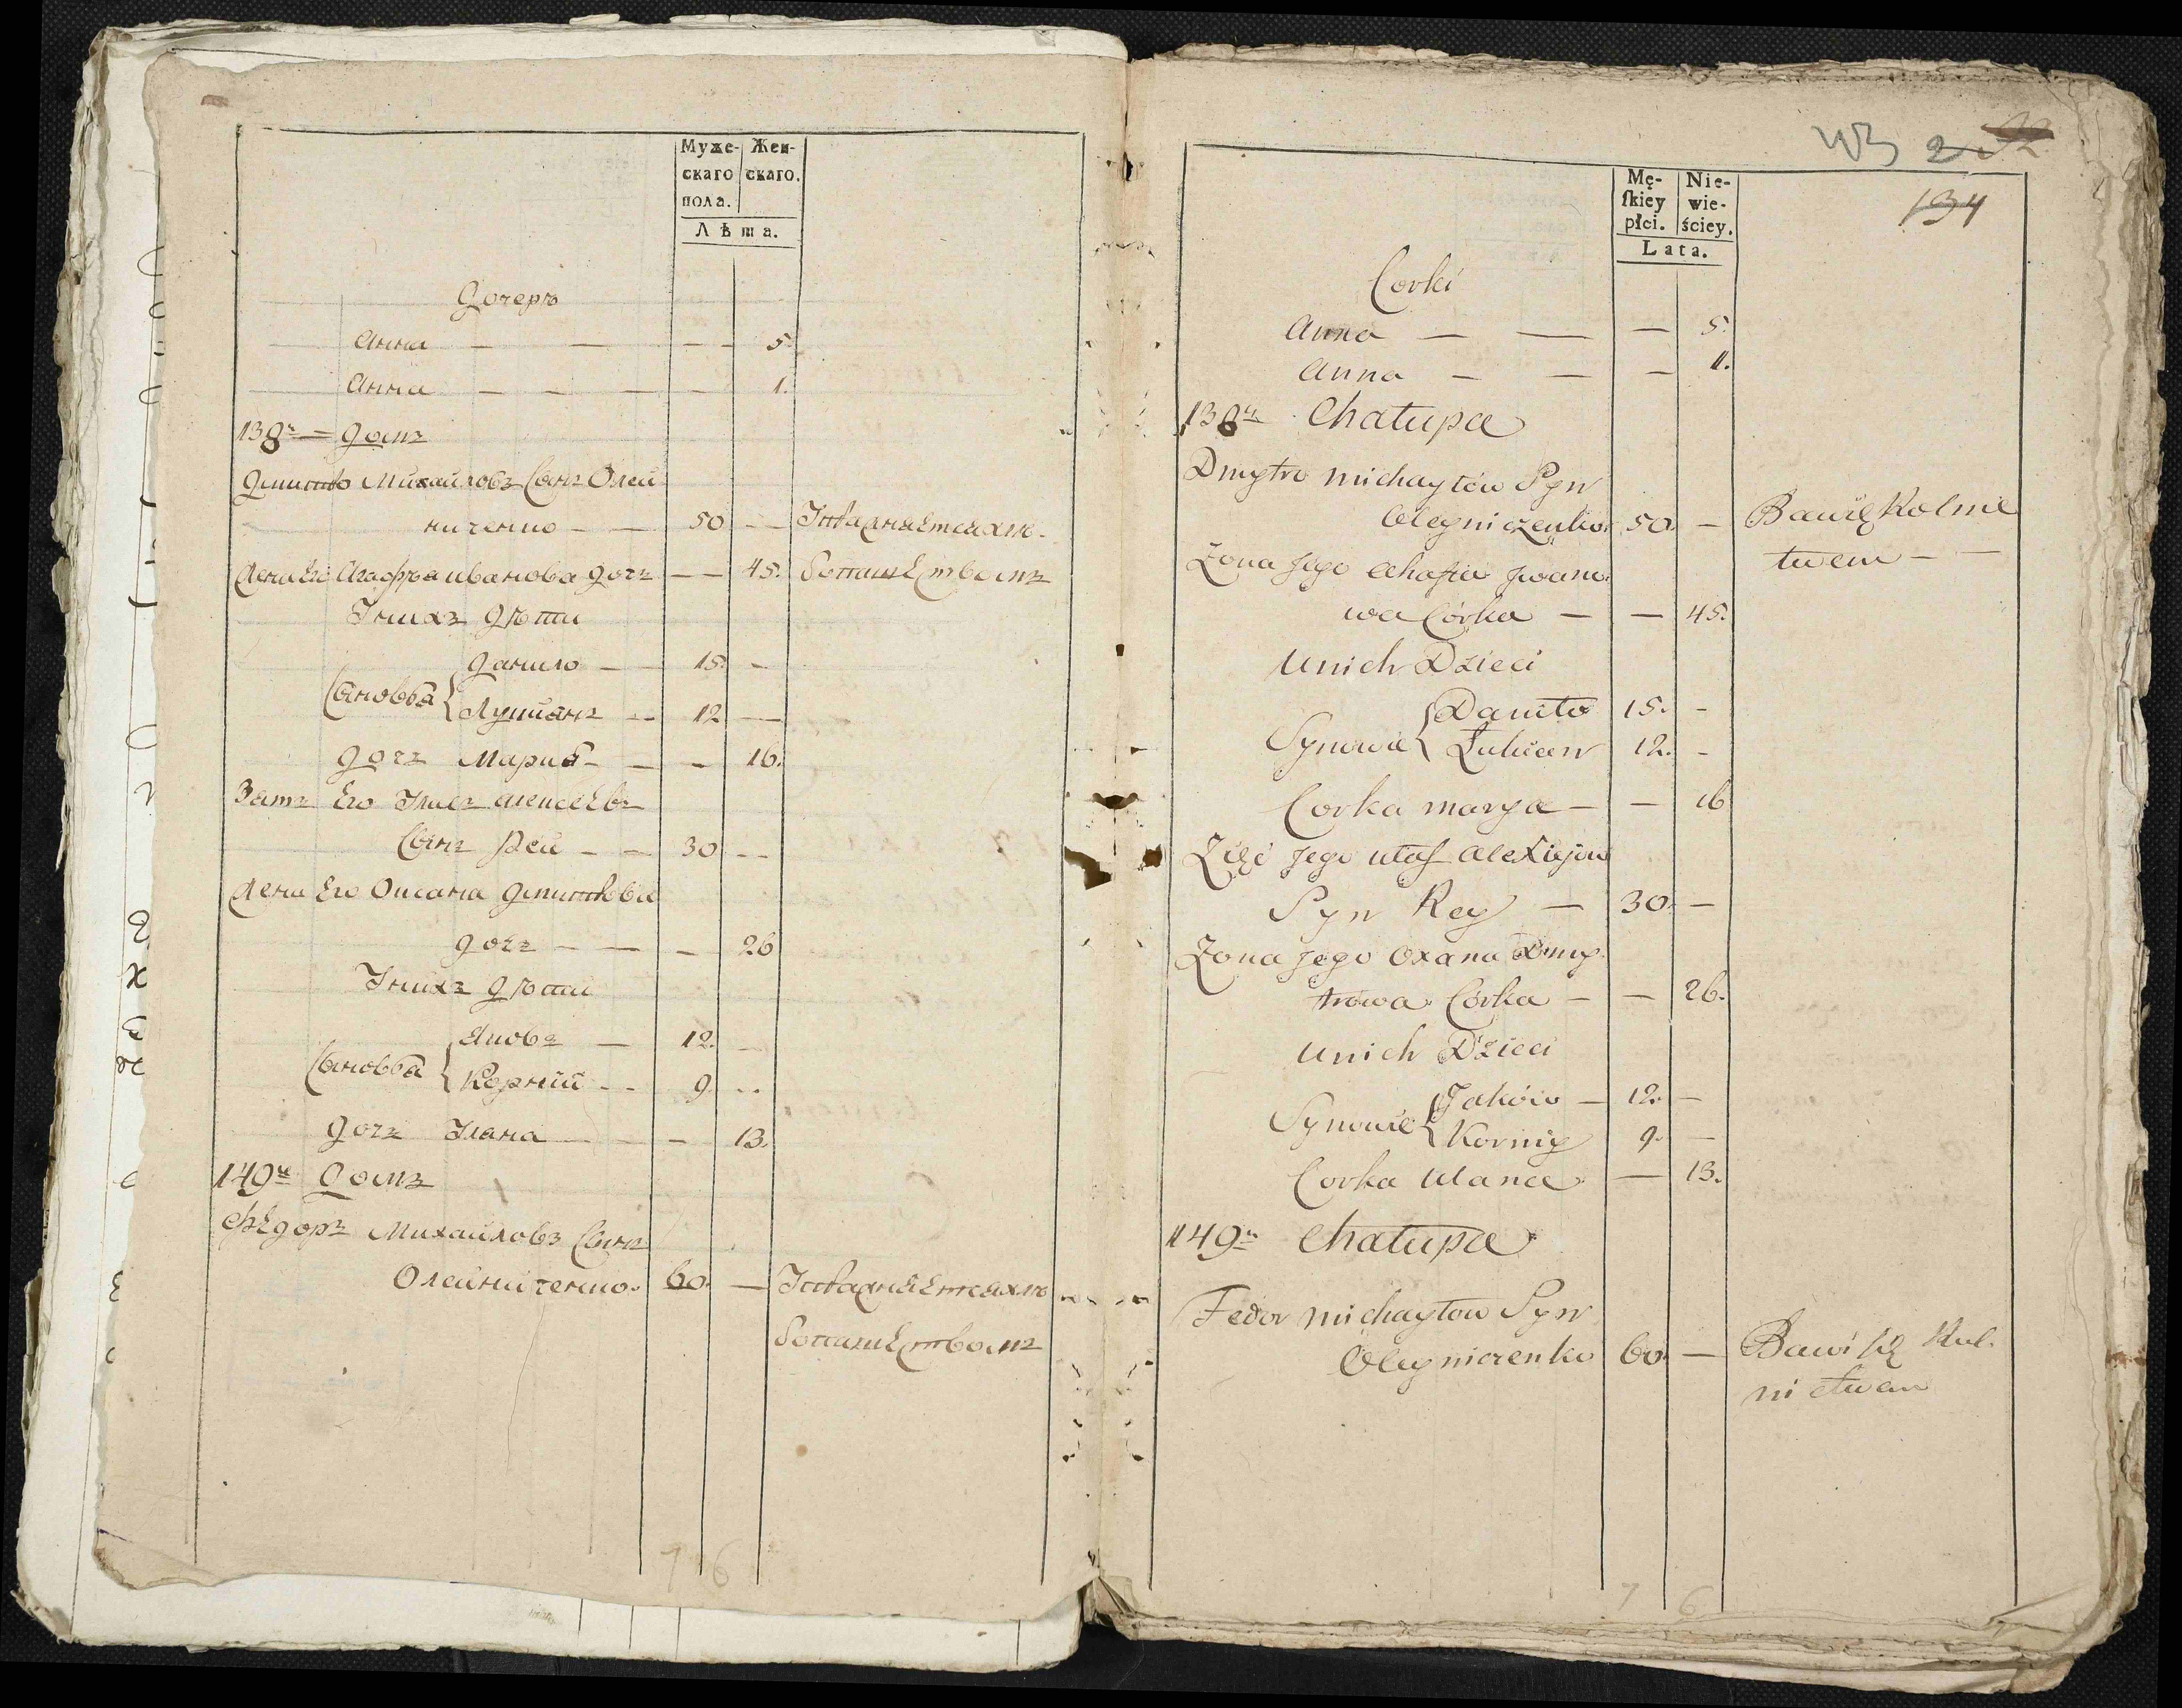 Муже-
скаго
пола.
Жен-
скаго.
Лѣта.
Дочерѣ
Анна — — — — 5.
Анна — — — — 1.
138й — Домъ
Дмитро Михайловъ Сынъ Олей
ниченко — — 50 —
Жена Его Агафъя иванова дочь — — 45.
Унихъ дѣти
Сыновья { Данило — 15. —
Лукиянъ — 12 —
дочь Мария — — — 16.
Зять Его Улас Алексеевъ
Сынъ Рей — — 30 —
Жена Его Оксана дмитрова
дочь — — — 26
Унихъ дѣти
Сыновья { Яковъ — 12. —
Корнiй — 9. —
дочь Улана — — — 13.
149й Домъ
Федоръ Михайловъ Сынъ
Олейниченко. 60. —
43
134
Mę-
ſkiey
płci.
Nie-
wie-
ściey.
Lata.
Corki
Anna — — — 5.
Anna — — — 1.
138a Chałupa
Dmytro michayłow Syn
Oleyniczenko 50. — Bawi się Rolnic
twem — —
Żona Jego Ahafia Jwano
wa Córka — — 45.
Unich Dzieci
Synowie { Daniło 15. —
Łukian 12. —
Corka marya — — 16
Zięć Jego Ułas Alexiejow
Syn Rey — 30. —
Żona Jego Oxana Dmy
trowa Córka — — 26.
Unich Dzieci
Synowie { Jaków — 12. —
Korniy 9. —
Corka Ulana — 13.
149a Chałupa
Fedor michayłow Syn
Oleyniczenko 60. — Bawi się Rol.
nictwem
7 6
7 6